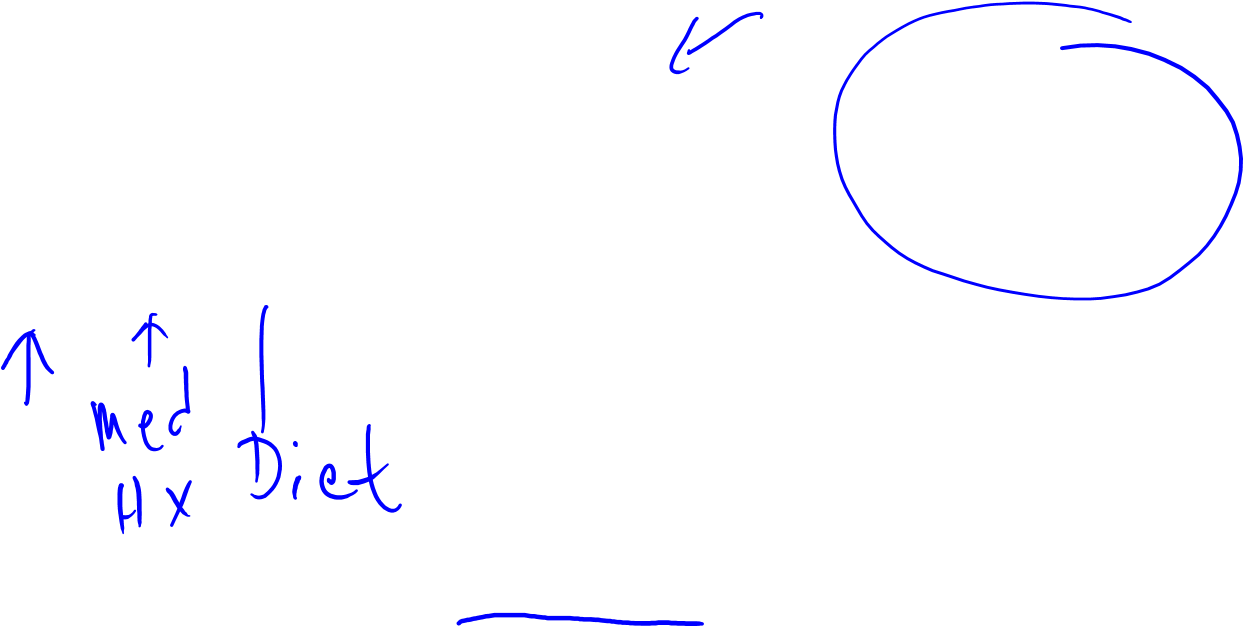 med
Hx Diet